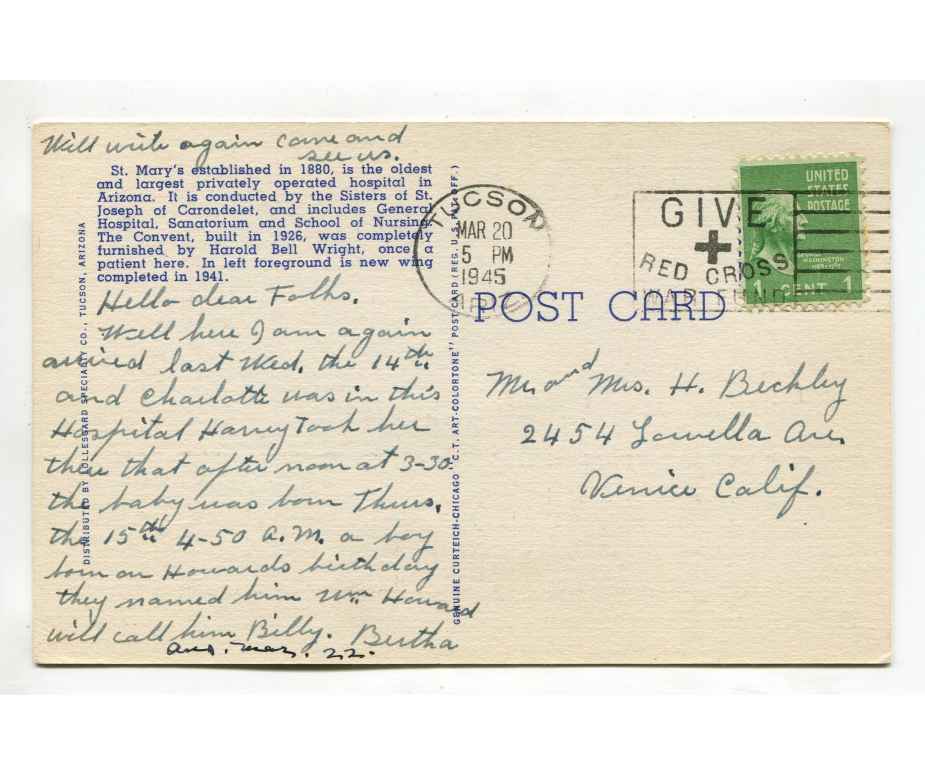 Will write again come and
see us.
St. Mary's established in 1880, is the oldest
and largest privately operated hospital in
Arizona. It is conducted by the Sisters of St.
Joseph of Carondelet, and includes General
Hospital, Sanatorium and School of Nursing.
The Convent, built in 1926, was completely
furnished by Harold Bell Wright, once a
patient here. In left foreground is new wing
completed in 1941.
Hello dear Folks.
Well here I am again
arrived last Wed. the 14th
and Charlotte was in this
Hospital Harvey Took her
there that after noon at 3-30
the baby was born Thurs.
the 15th 4-50 A.M. a boy
born on Howards birthday
they named him Wm Howard
will call him Billy. Bertha
ans. Mar. 22.
DISTRIBUTED BY LOLLESGARD SPECIALTY CO., TUCSON, ARIZONA
GENUINE CURTEICH-CHICAGO "C.T. ART-COLORTONE" POST CARD (REG. U.S. PAT. OFF.)
TUCSON
MAR 20
5 PM
1945
GIVE
RED CROSS
WAR FUND
UNITED
STATES
POSTAGE
GEORGE
WASHINGTON
1 CENT 1
POST CARD
Mr and Mrs. H. Beckley
2454 Lowella Ave.
Venice Calif.